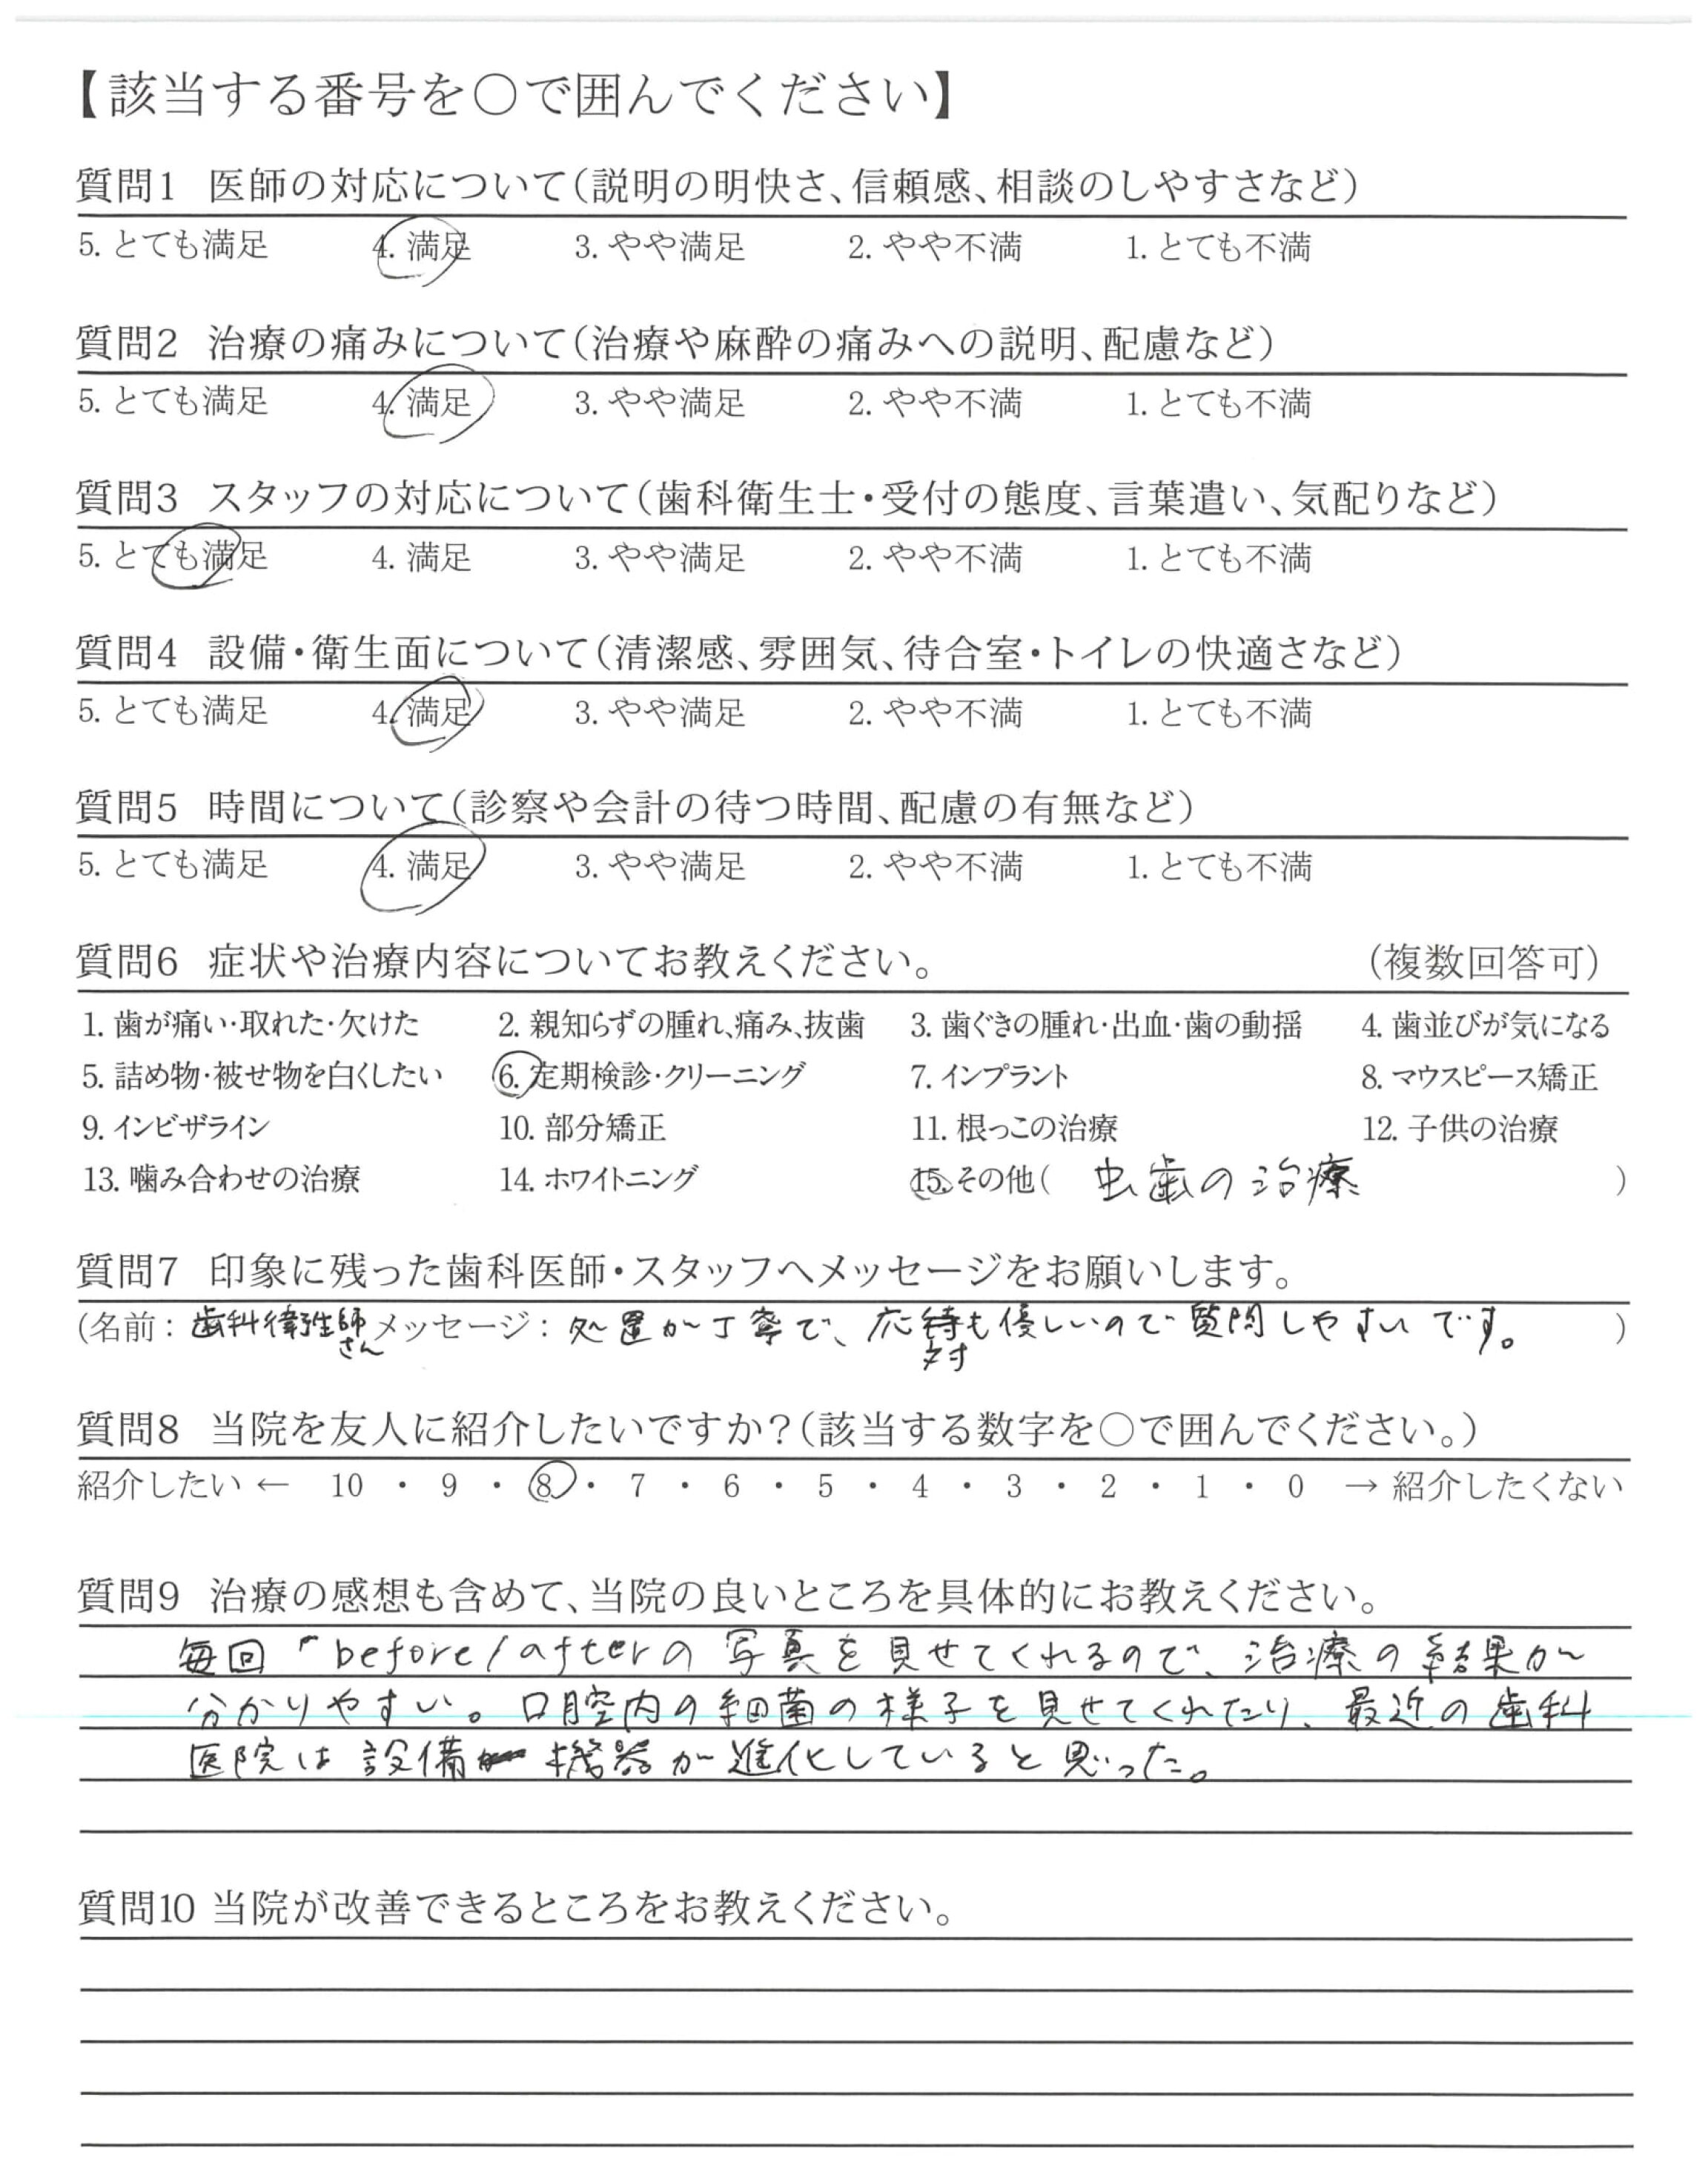 【該当する番号を○で囲んでください】
質問1 医師の対応について(説明の明快さ、信頼感、相談のしやすさなど)
5. とても満足 4. 満足 3. やや満足 2. やや不満 1. とても不満
質問2 治療の痛みについて(治療や麻酔の痛みへの説明、配慮など)
5. とても満足 4. 満足 3. やや満足 2. やや不満 1. とても不満
質問3 スタッフの対応について(歯科衛生士・受付の態度、言葉遣い、気配りなど)
5. とても満足 4. 満足 3. やや満足 2. やや不満 1. とても不満
質問4 設備・衛生面について(清潔感、雰囲気、待合室・トイレの快適さなど)
5. とても満足 4. 満足 3. やや満足 2. やや不満 1. とても不満
質問5 時間について(診察や会計の待つ時間、配慮の有無など)
5. とても満足 4. 満足 3. やや満足 2. やや不満 1. とても不満
質問6 症状や治療内容についてお教えください。 (複数回答可)
1. 歯が痛い・取れた・欠けた 2. 親知らずの腫れ、痛み、抜歯 3. 歯ぐきの腫れ・出血・歯の動揺 4. 歯並びが気になる
5. 詰め物・被せ物を白くしたい 6. 定期検診・クリーニング 7. インプラント 8. マウスピース矯正
9. インビザライン 10. 部分矯正 11. 根っこの治療 12. 子供の治療
13. 噛み合わせの治療 14. ホワイトニング 15. その他( 虫歯の治療 )
質問7 印象に残った歯科医師・スタッフへメッセージをお願いします。
(名前: 歯科衛生師さん メッセージ: 処置が丁寧で、応対も優しいので質問しやすいです。 )
質問8 当院を友人に紹介したいですか?(該当する数字を○で囲んでください。)
紹介したい ← 10 ・ 9 ・ 8 ・ 7 ・ 6 ・ 5 ・ 4 ・ 3 ・ 2 ・ 1 ・ 0 → 紹介したくない
質問9 治療の感想も含めて、当院の良いところを具体的にお教えください。
毎回 before/afterの写真を見せてくれるので、治療の結果が
分かりやすい。口腔内の細菌の様子を見せてくれたり、最近の歯科
医院は設備機器が進化していると思った。
質問10 当院が改善できるところをお教えください。